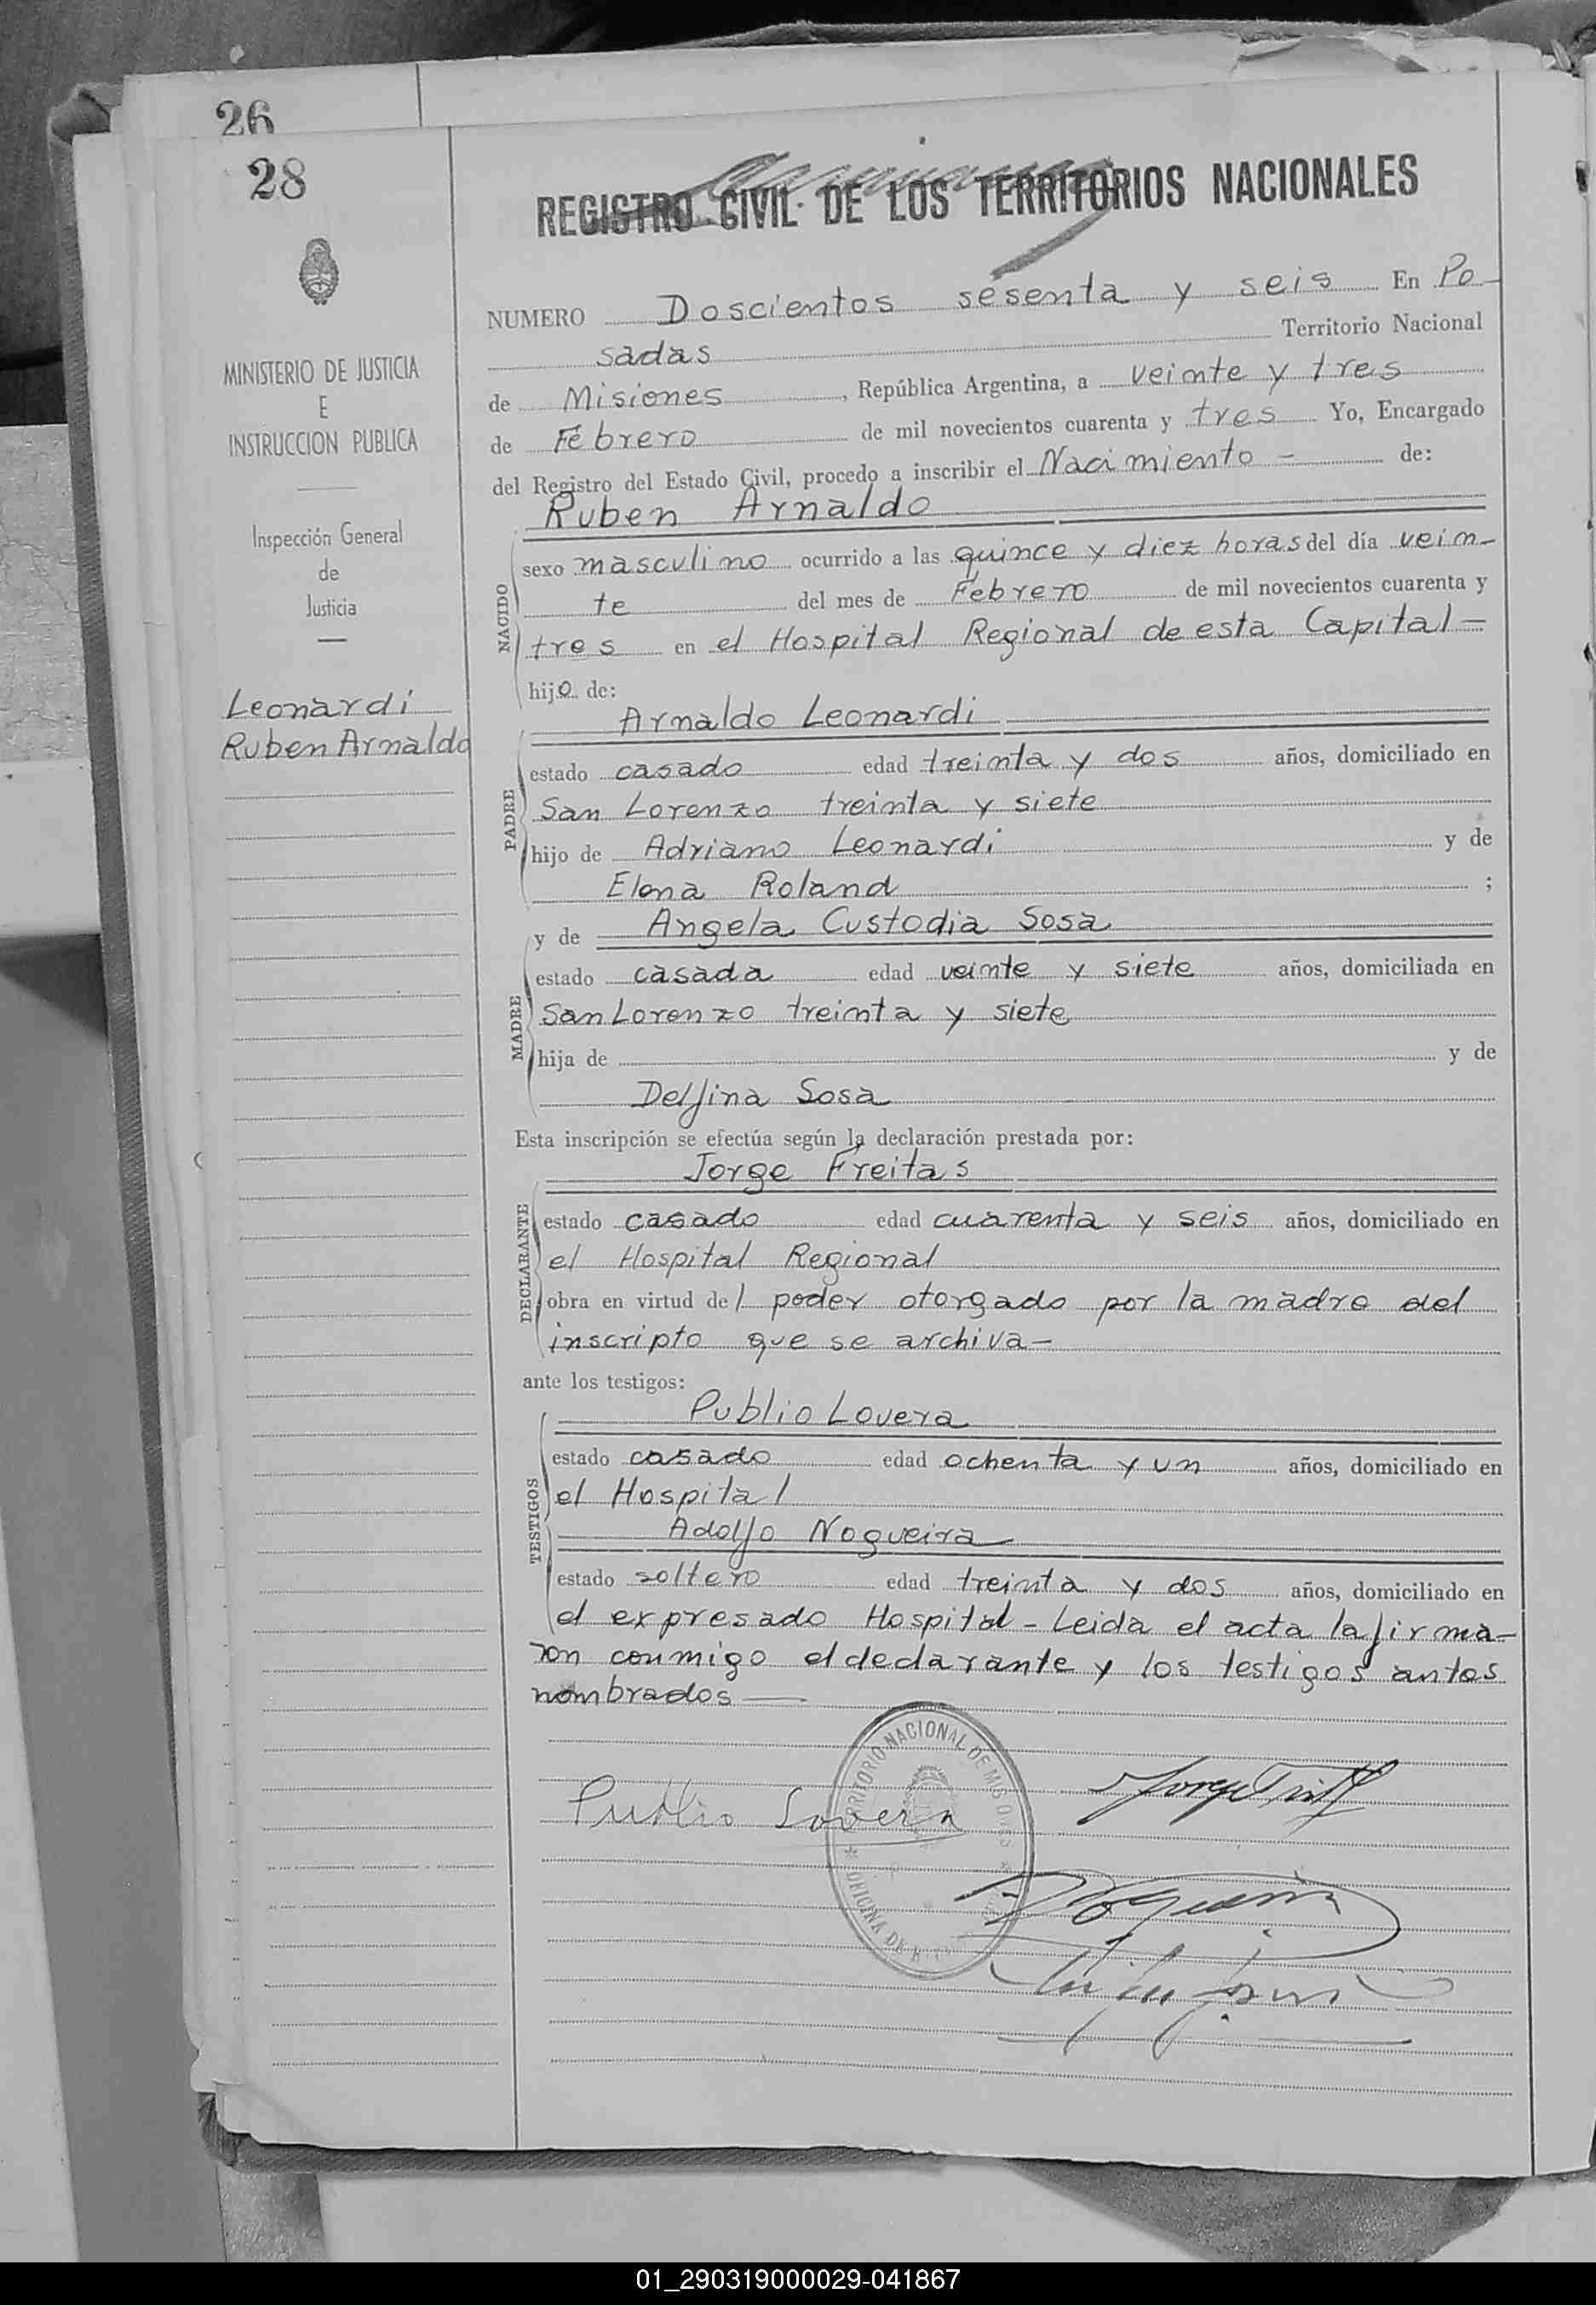 26
28
REGISTRO CIVIL DE LOS TERRITORIOS NACIONALES
MINISTERIO DE JUSTICIA
E
INSTRUCCION PUBLICA
Inspección General
de
Justicia
Leonardi
Ruben Arnaldo
NUMERO Doscientos sesenta y seis En Po-
sadas Territorio Nacional
de Misiones, República Argentina, a veinte y tres
de Febrero de mil novecientos cuarenta y tres Yo, Encargado
del Registro del Estado Civil, procedo a inscribir el Nacimiento - de:
Ruben Arnaldo
NACIDO
sexo masculino ocurrido a las quince y diez horas del día vein-
te del mes de Febrero de mil novecientos cuarenta y
tres en el Hospital Regional de esta Capital -
hijo de:
Arnaldo Leonardi
PADRE
estado casado edad treinta y dos años, domiciliado en
San Lorenzo treinta y siete
hijo de Adriano Leonardi y de
Elena Roland ;
y de Angela Custodia Sosa
MADRE
estado casada edad veinte y siete años, domiciliada en
San Lorenzo treinta y siete
hija de y de
Delfina Sosa
Esta inscripción se efectúa según la declaración prestada por:
Jorge Freitas
DECLARANTE
estado casado edad cuarenta y seis años, domiciliado en
el Hospital Regional
obra en virtud del poder otorgado por la madre del
inscripto que se archiva -
ante los testigos:
Publio Lovera
TESTIGOS
estado casado edad ochenta y un años, domiciliado en
el Hospital
Adolfo Nogueira
estado soltero edad treinta y dos años, domiciliado en
el expresado Hospital - Leida el acta la firma-
ron conmigo el declarante y los testigos antes
nombrados —
TERRITORIO NACIONAL DE MISIONES
OFICINA DE R
Publio Lovera
01_290319000029-041867